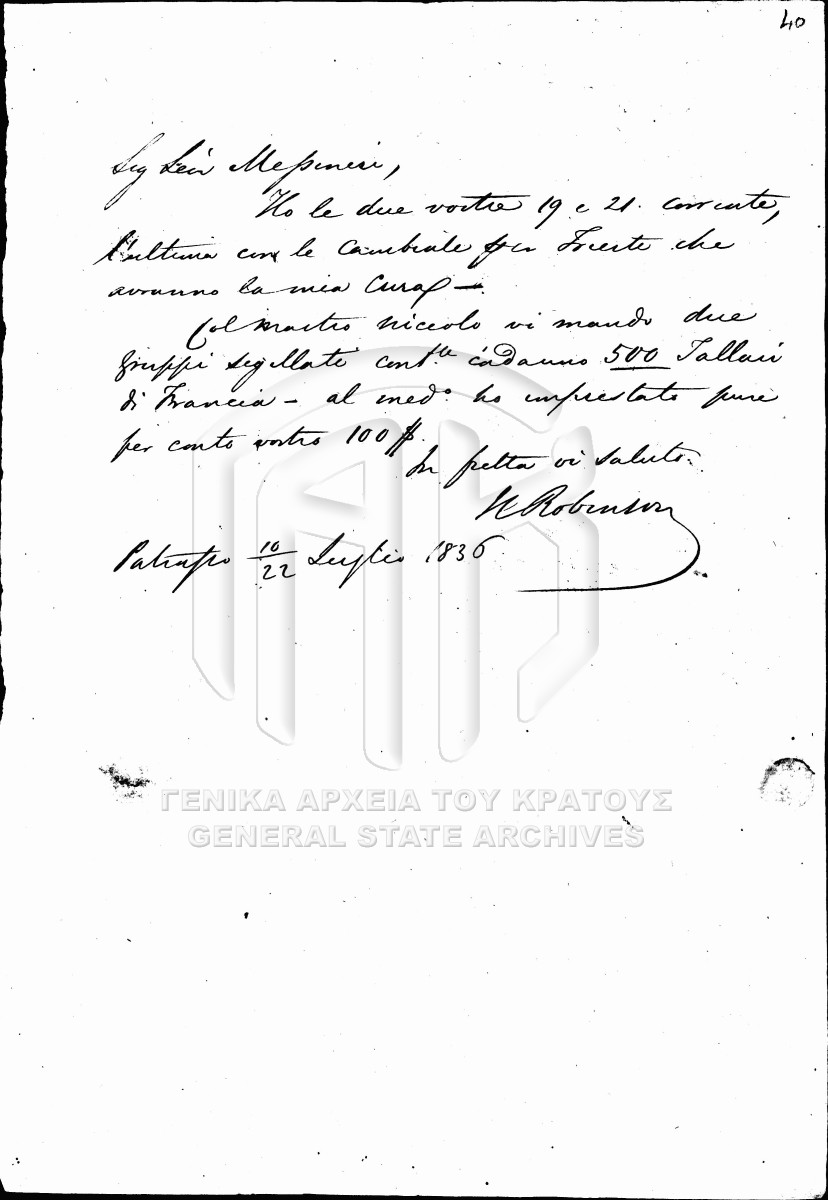 40
Sig Leon Messinesi,
Ho le due vostre 19 e 21. corrente,
l'ultima con le Cambiale per Trieste che
avranno la mia Cura —.
Col vostro Niccolo vi mando due
gruppi sigillati contti. cadauno 500 Tallari
di Francia — al medo. ho imprestato pure
per conto vostro 100 $.
In fretta vi saluto.
Robinson
Patrasso 10/22 Luglio 1836
ΓΕΝΙΚΑ ΑΡΧΕΙΑ ΤΟΥ ΚΡΑΤΟΥΣ
GENERAL STATE ARCHIVES